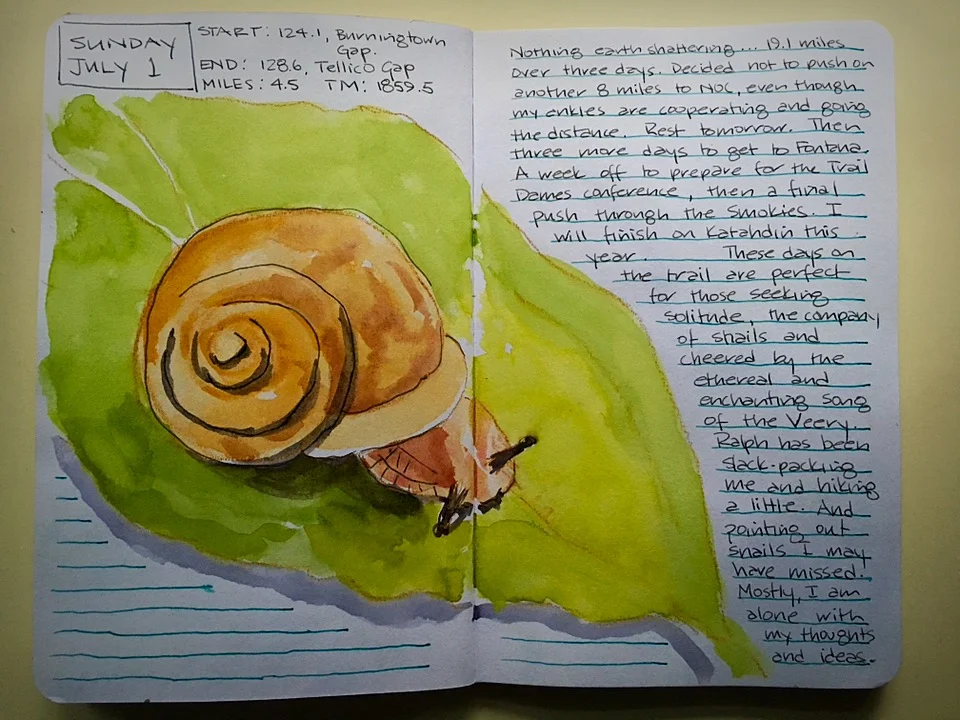 SUNDAY
JULY 1
START: 124.1, Burningtown
Gap.
END: 128.6, Tellico Gap
MILES: 4.5 TM: 1859.5
Nothing earth shattering... 19.1 miles
over three days. Decided not to push on
another 8 miles to NOC, even though
my ankles are cooperating and going
the distance. Rest tomorrow. Then
three more days to get to Fontana.
A week off to prepare for the Trail
Dames conference, then a final
push through the Smokies. I
will finish on Katahdin this
year. These days on
the trail are perfect
for those seeking
solitude, the company
of snails and
cheered by the
ethereal and
enchanting song
of the Veery.
Ralph has been
slack-packing
me and hiking
a little. And
pointing out
snails I may
have missed.
Mostly, I am
alone with
my thoughts
and ideas.